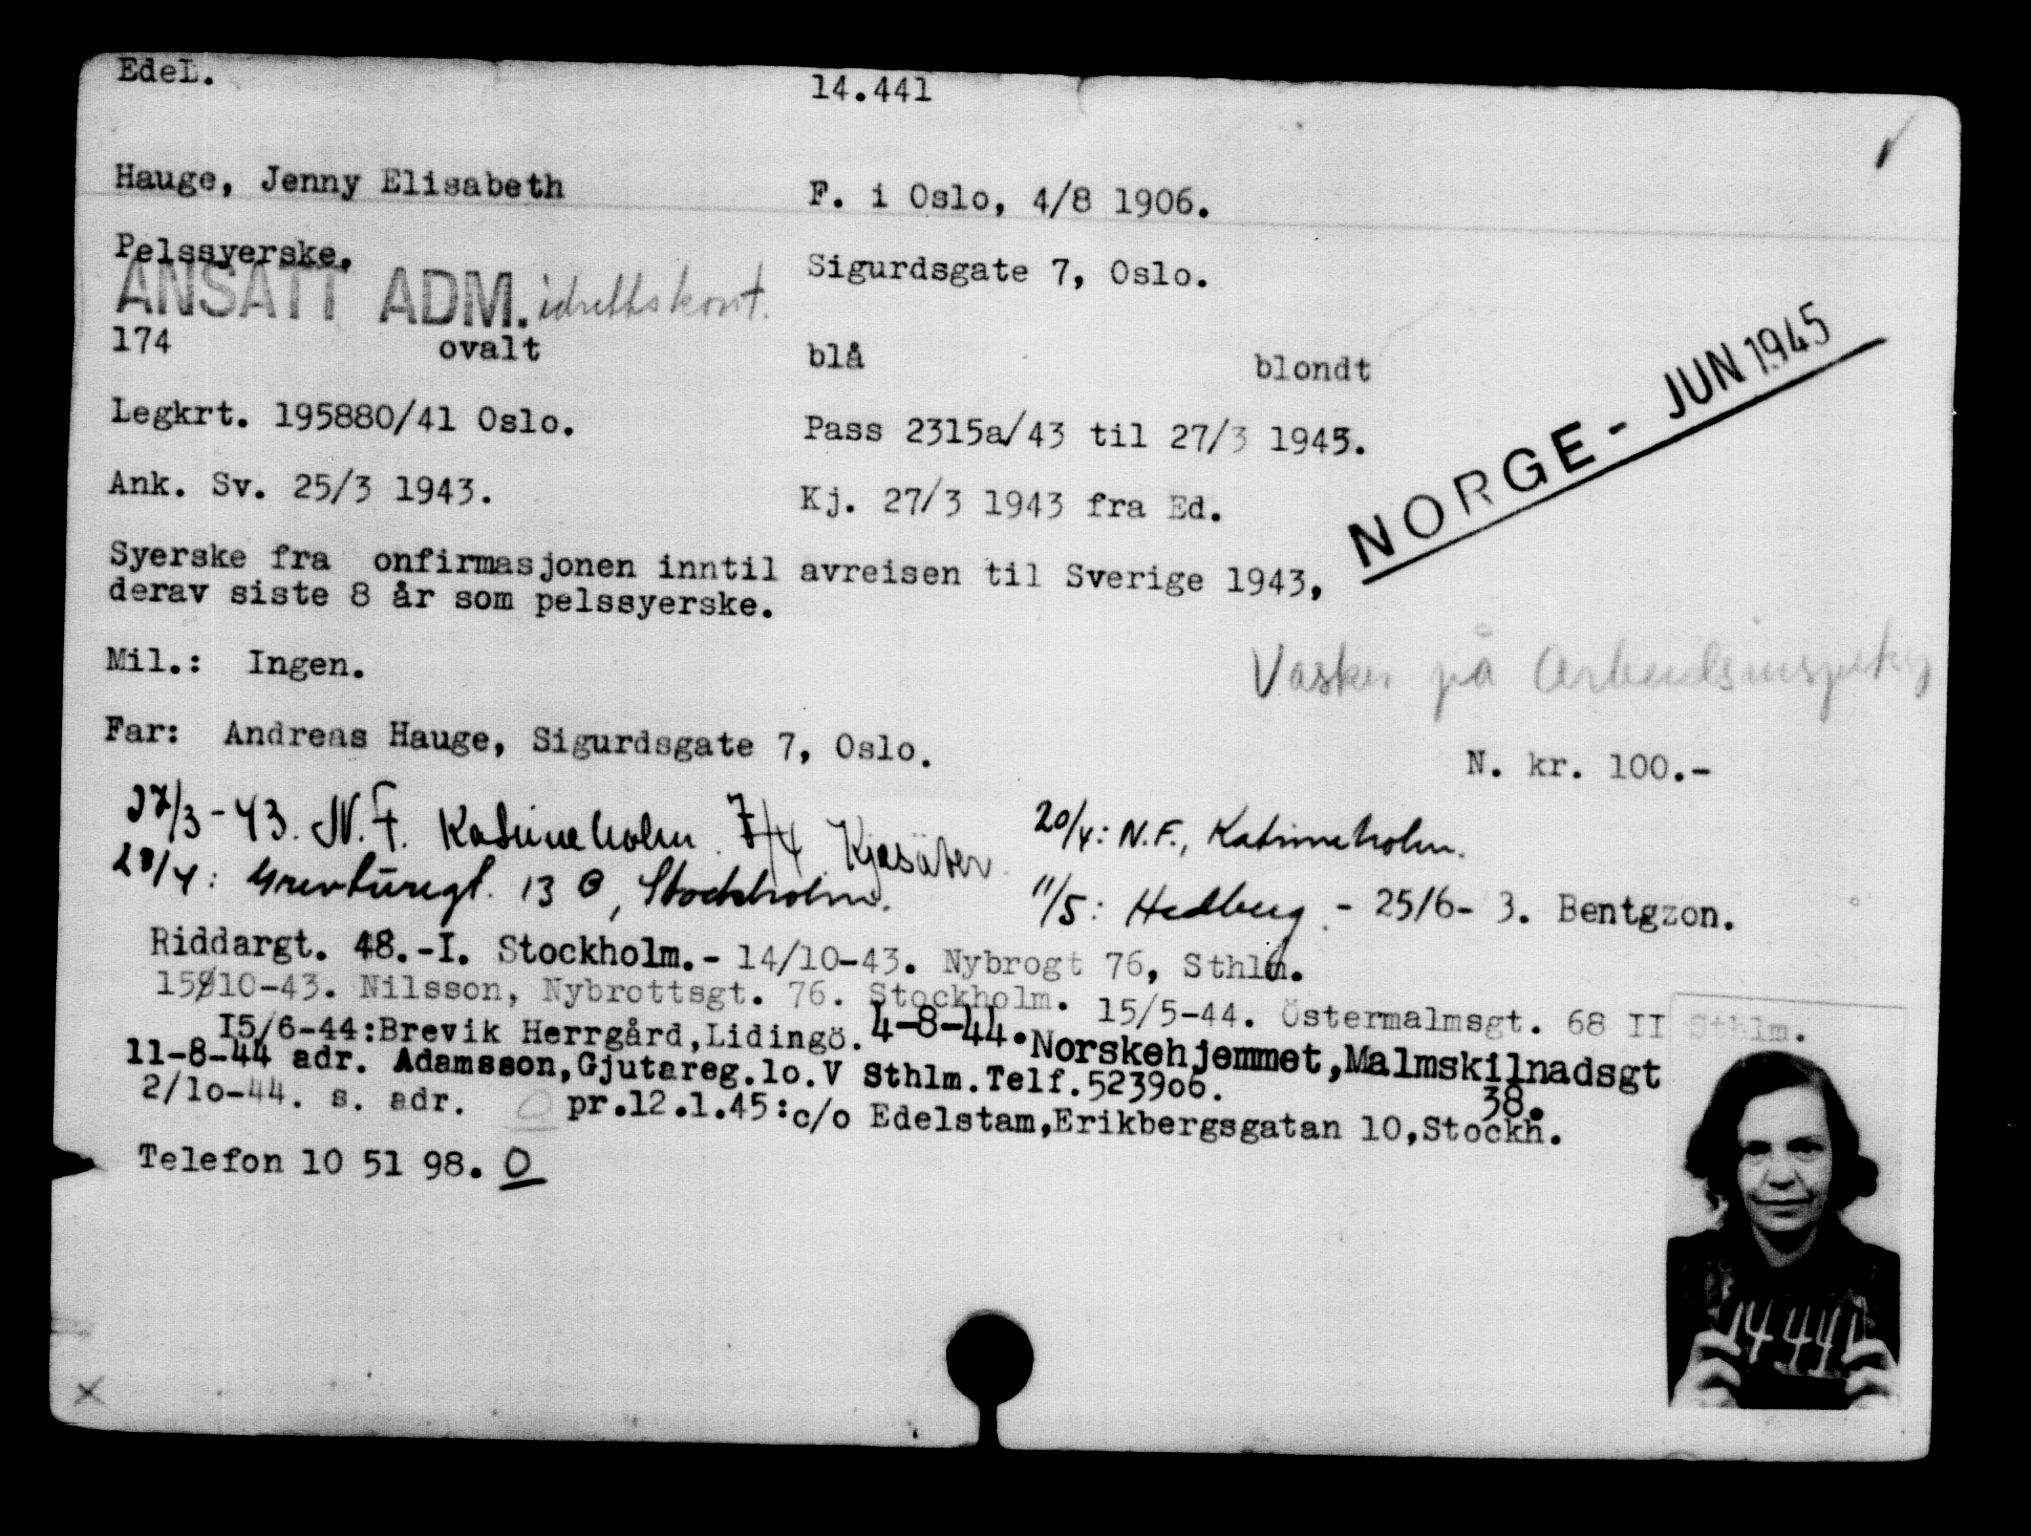 EdeL.
14.441
Hauge, Jenny Elisabeth
F. i Oslo, 4/8 1906.
Pelssyerske.
Sigurdsgate 7, Oslo.
ANSATT ADM. idrettskont.
174 ovalt
blå blondt
NORGE - JUN 1945
Legkrt. 195880/41 Oslo.
Pass 2315a/43 til 27/3 1945.
Ank. Sv. 25/3 1943.
Kj. 27/3 1943 fra Ed.
Syerske fra onfirmasjonen inntil avreisen til Sverige 1943,
derav siste 8 år som pelssyerske.
Mil.: Ingen.
Vasker på
Far: Andreas Hauge, Sigurdsgate 7, Oslo.
N. kr. 100.-
27/3-43. N.F. Katrineholm. 7/4 Kjesäter.
20/4: N.F., Katrineholm.
28/4: 13 Stockholm.
11/5: Hedberg. - 25/6- 3. Bentgzon.
Riddargt. 48.-I. Stockholm.- 14/10-43. Nybrogt 76, Sthlm.
15/10-43. Nilsson, Nybrottsgt. 76. Stockholm. 15/5-44. Östermalmsgt. 68 II Sthlm.
I5/6-44:Brevik Herrgård,Lidingö. 4-8-44. Norskehjemmet,Malmskilnadsgt
38.
11-8-44 adr. Adamsson,Gjutareg.lo.V Sthlm.Telf.5239o6.
2/lo-44. s. adr. O pr.12.1.45:c/o Edelstam,Erikbergsgatan 10,Stockh.
Telefon 10 51 98. O
14441
X